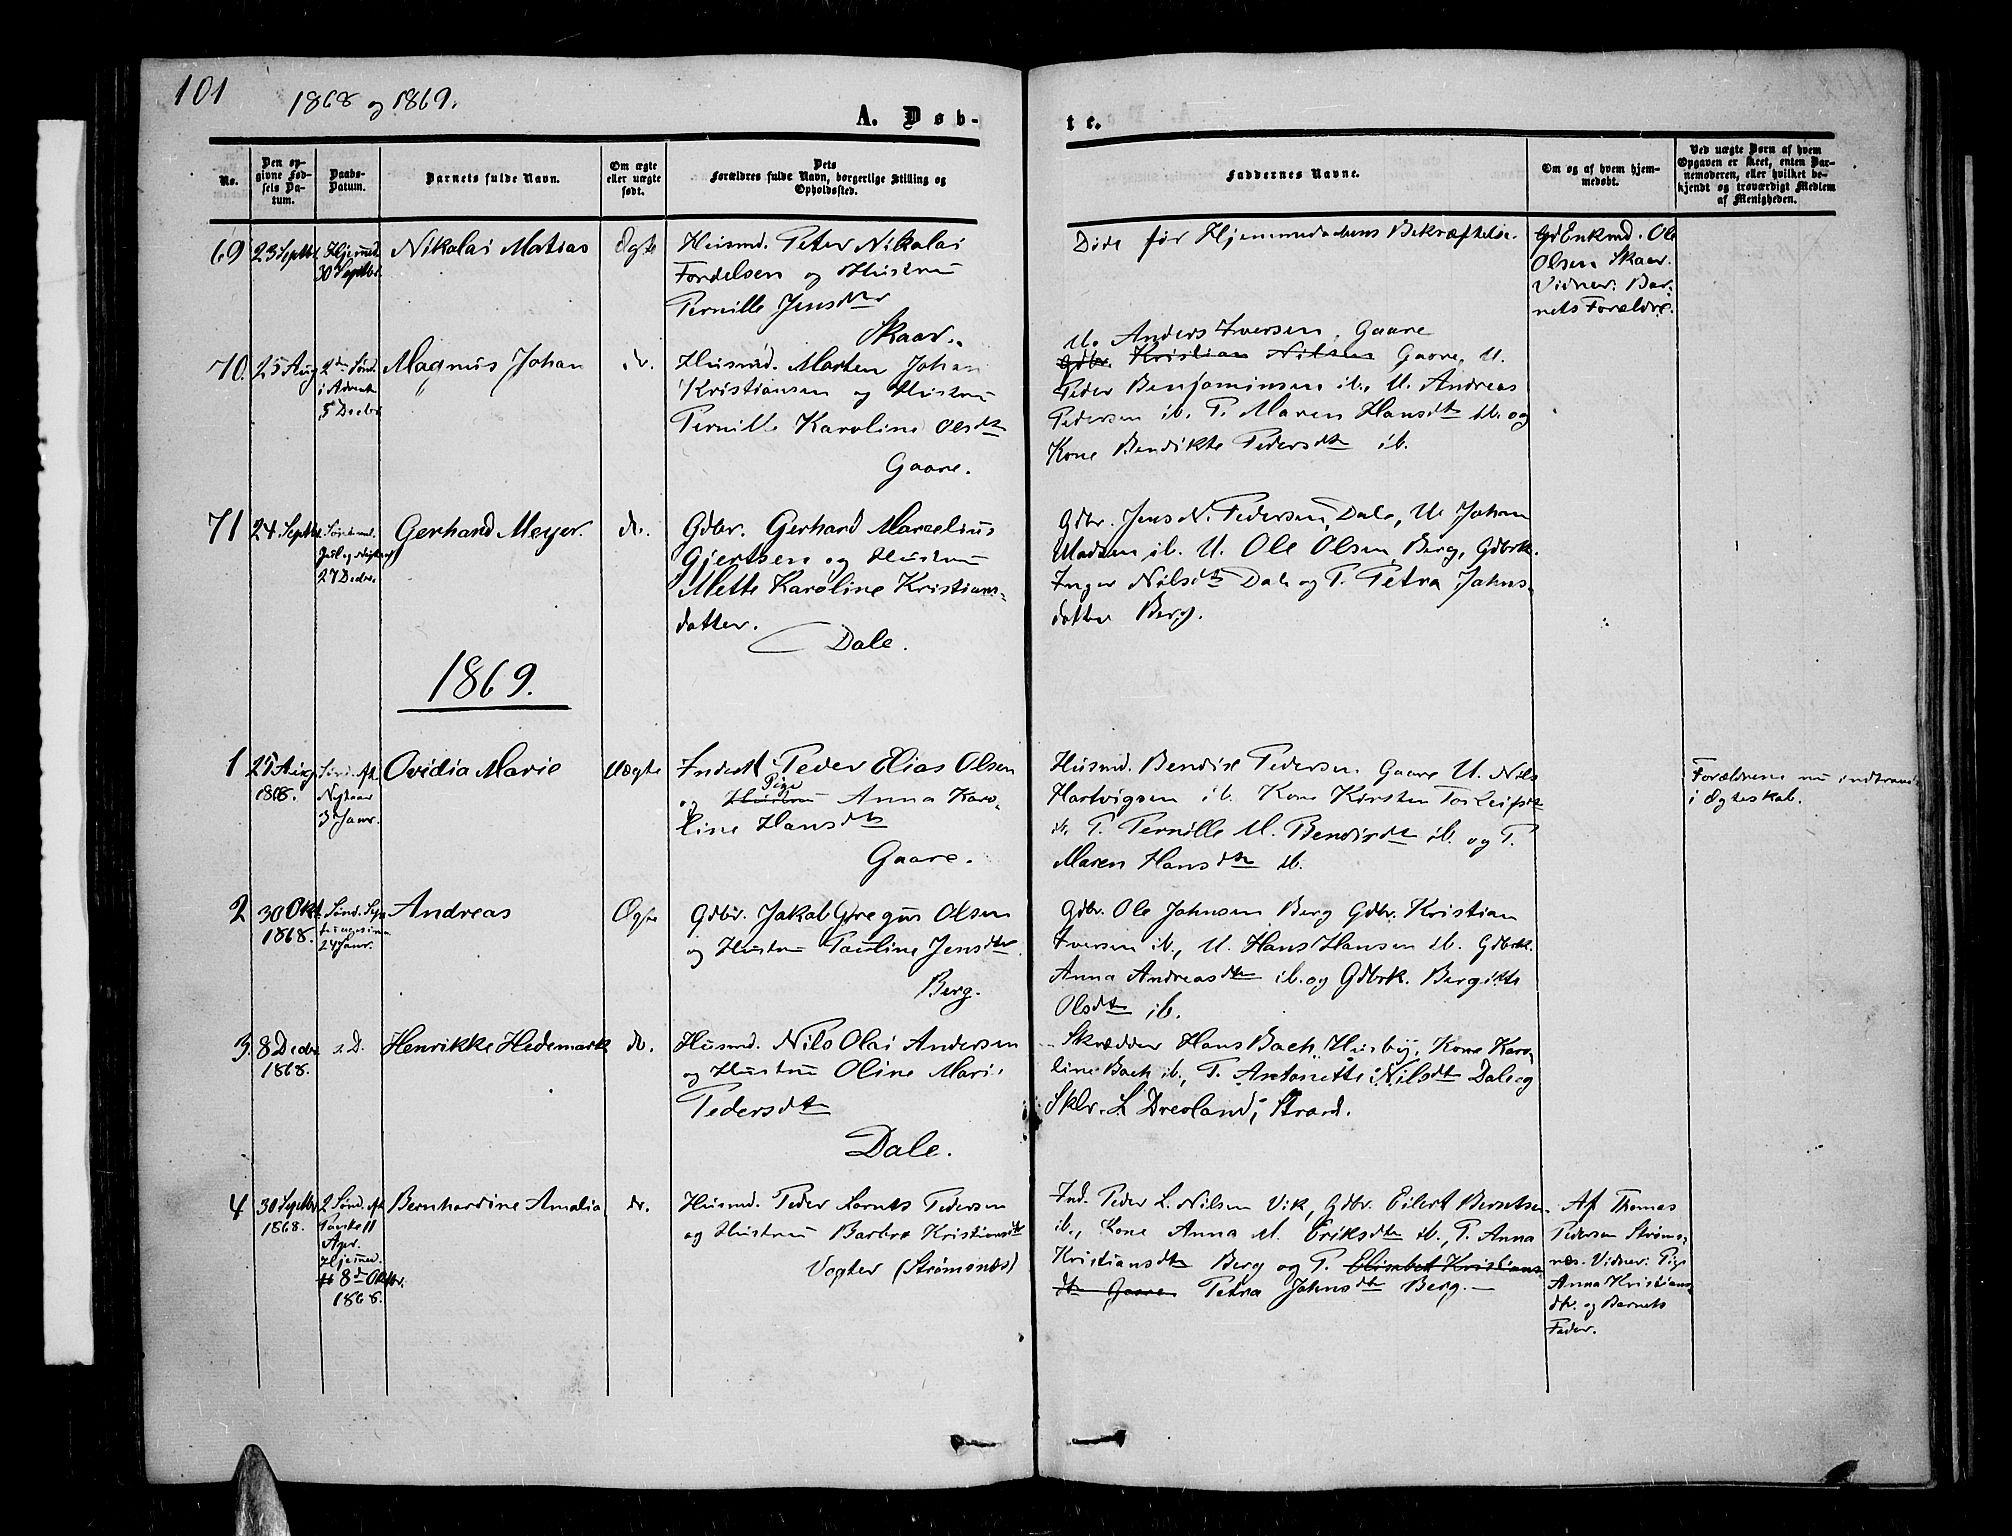 101
1868 og 1869.
A. Døb-
te.
No.
Den op-
givne Fød-
sels Da-
tum.
Daabs-
Datum.
Barnets fulde Navn.
Om ægte
eller uægte
født.
Dets
Forældres fulde Navn, borgerlige Stilling og
Opholdssted.
Faddernes Navne.
Om og af hvem hjem-
medøbt.
Ved uægte Børn af hvem
Opgaven er skeet, enten Bar-
nemoderen, eller hvilket be-
kjendt og troværdigt Medlem
af Menigheden.
69
23 Septbr.
Hjemmed.
30 Septbr.
Nikolai Matias
Ægte
Husmd. Peter Nikolai
Fordelsen og Hustru
Pernille Jensdtr
Skaar.
Døde før Hjemmedaabens Bekræftelse.
Enkmd. Ole
Olsen Skaar.
Vidner: Bar-
nets Forældre.
70.
25 Aug
2den Sønd.
i Advent
5 Decbr.
Magnus Johan
do.
Husmd. Morten Johan
Kristiansen og Hustru
Pernille Karoline Olsdtr
Gaare.
U. Anders Iversen, Gaare
Gdbr. Kristian Nilsen Gaare, U.
Peder Benjaminsen ib., U. Andreas
Pedersen ib. P. Maren Hansdtr ib. og
Kone Bendikte Pedersdtr ib.
71
24 Septbr.
Jul og Nytaar
27 Decbr.
Gerhard Meyer.
do.
Gdbr. Gerhard Marcelius
Gjertsen og Hustru
Mette Karoline Kristians-
datter.
Dale.
Gdbr. Jens N. Pedersen, Dale, U. Johan
Madsen ib. U. Ole Olsen Berg, Gdbrk.
Inger Nilsdtr Dale og P. Petra Johns-
datter Berg.
1869.
1
27 Aug
1868.
Sønd. eft.
Nytaar
3 Janr.
Ovidia Marie
Uægte
Inderst Peder Elias Olsen
Pige
og Hustru Anna Karo-
line Hansdtr
Gaare.
Husmd. Bendix Pedersen Gaare U. Nils
Hartvigsen ib. Kone Kirsten Torleifsdtr
ib. P. Pernille M. Bendixdtr ib. og P.
Maren Hansdtr ib.
Forældrene nu indtraadt
i Ægteskab.
2
30 Okt.
1868.
Sønd. Sep
tuagesima
24 Janr.
Andreas
Ægte
Gdbr. Jakob Gregus Olsen
og Hustru Pauline Jensdtr
Berg.
Gdbr. Ole Johnsen Berg Gdbr. Kristian
Iversen ib., U. Hans Hansen ib. Gdbrk.
Anna Andreasdtr ib. og Gdbrk. Bergitte
Olsdtr ib.
3.
8 Decbr
1868.
s. D.
Henrikke Hedemark
do.
Husmd. Nils Olai Andersen
og Hustru Oline Marie
Pedersdtr
Dale.
Skrædder Hans Bach, Husby, Kone Karo-
line Bach ib., P. Antonette Nilsdtr Dale og
Sklr. L Drevland, Strand.
4
30 Septbr
1868.
2 Sønd. eft.
Paaske 11
Apr.
Hjemmed.
8de Oktbr.
1868.
Bernhardine Amalia
do.
Husmd. Peder Lornts Pedersen
og Hustru Barbro Kristiansdtr
Vogter (Strømsnæs)
Ind. Peder L. Nilsen Vik, Gdbr. Eilert Berntsen
ib., Kone Anna M. Eriksdtr ib., P. Anna
Kristiansdtr Berg og P. Elisabet Kristians-
dtr Gaare Petra Johnsdtr Berg.
Af Thomas
Pedersen Strøms-
næs. Vidner: Pige
Anna Kristians-
dtr. og Barnets
Fader.